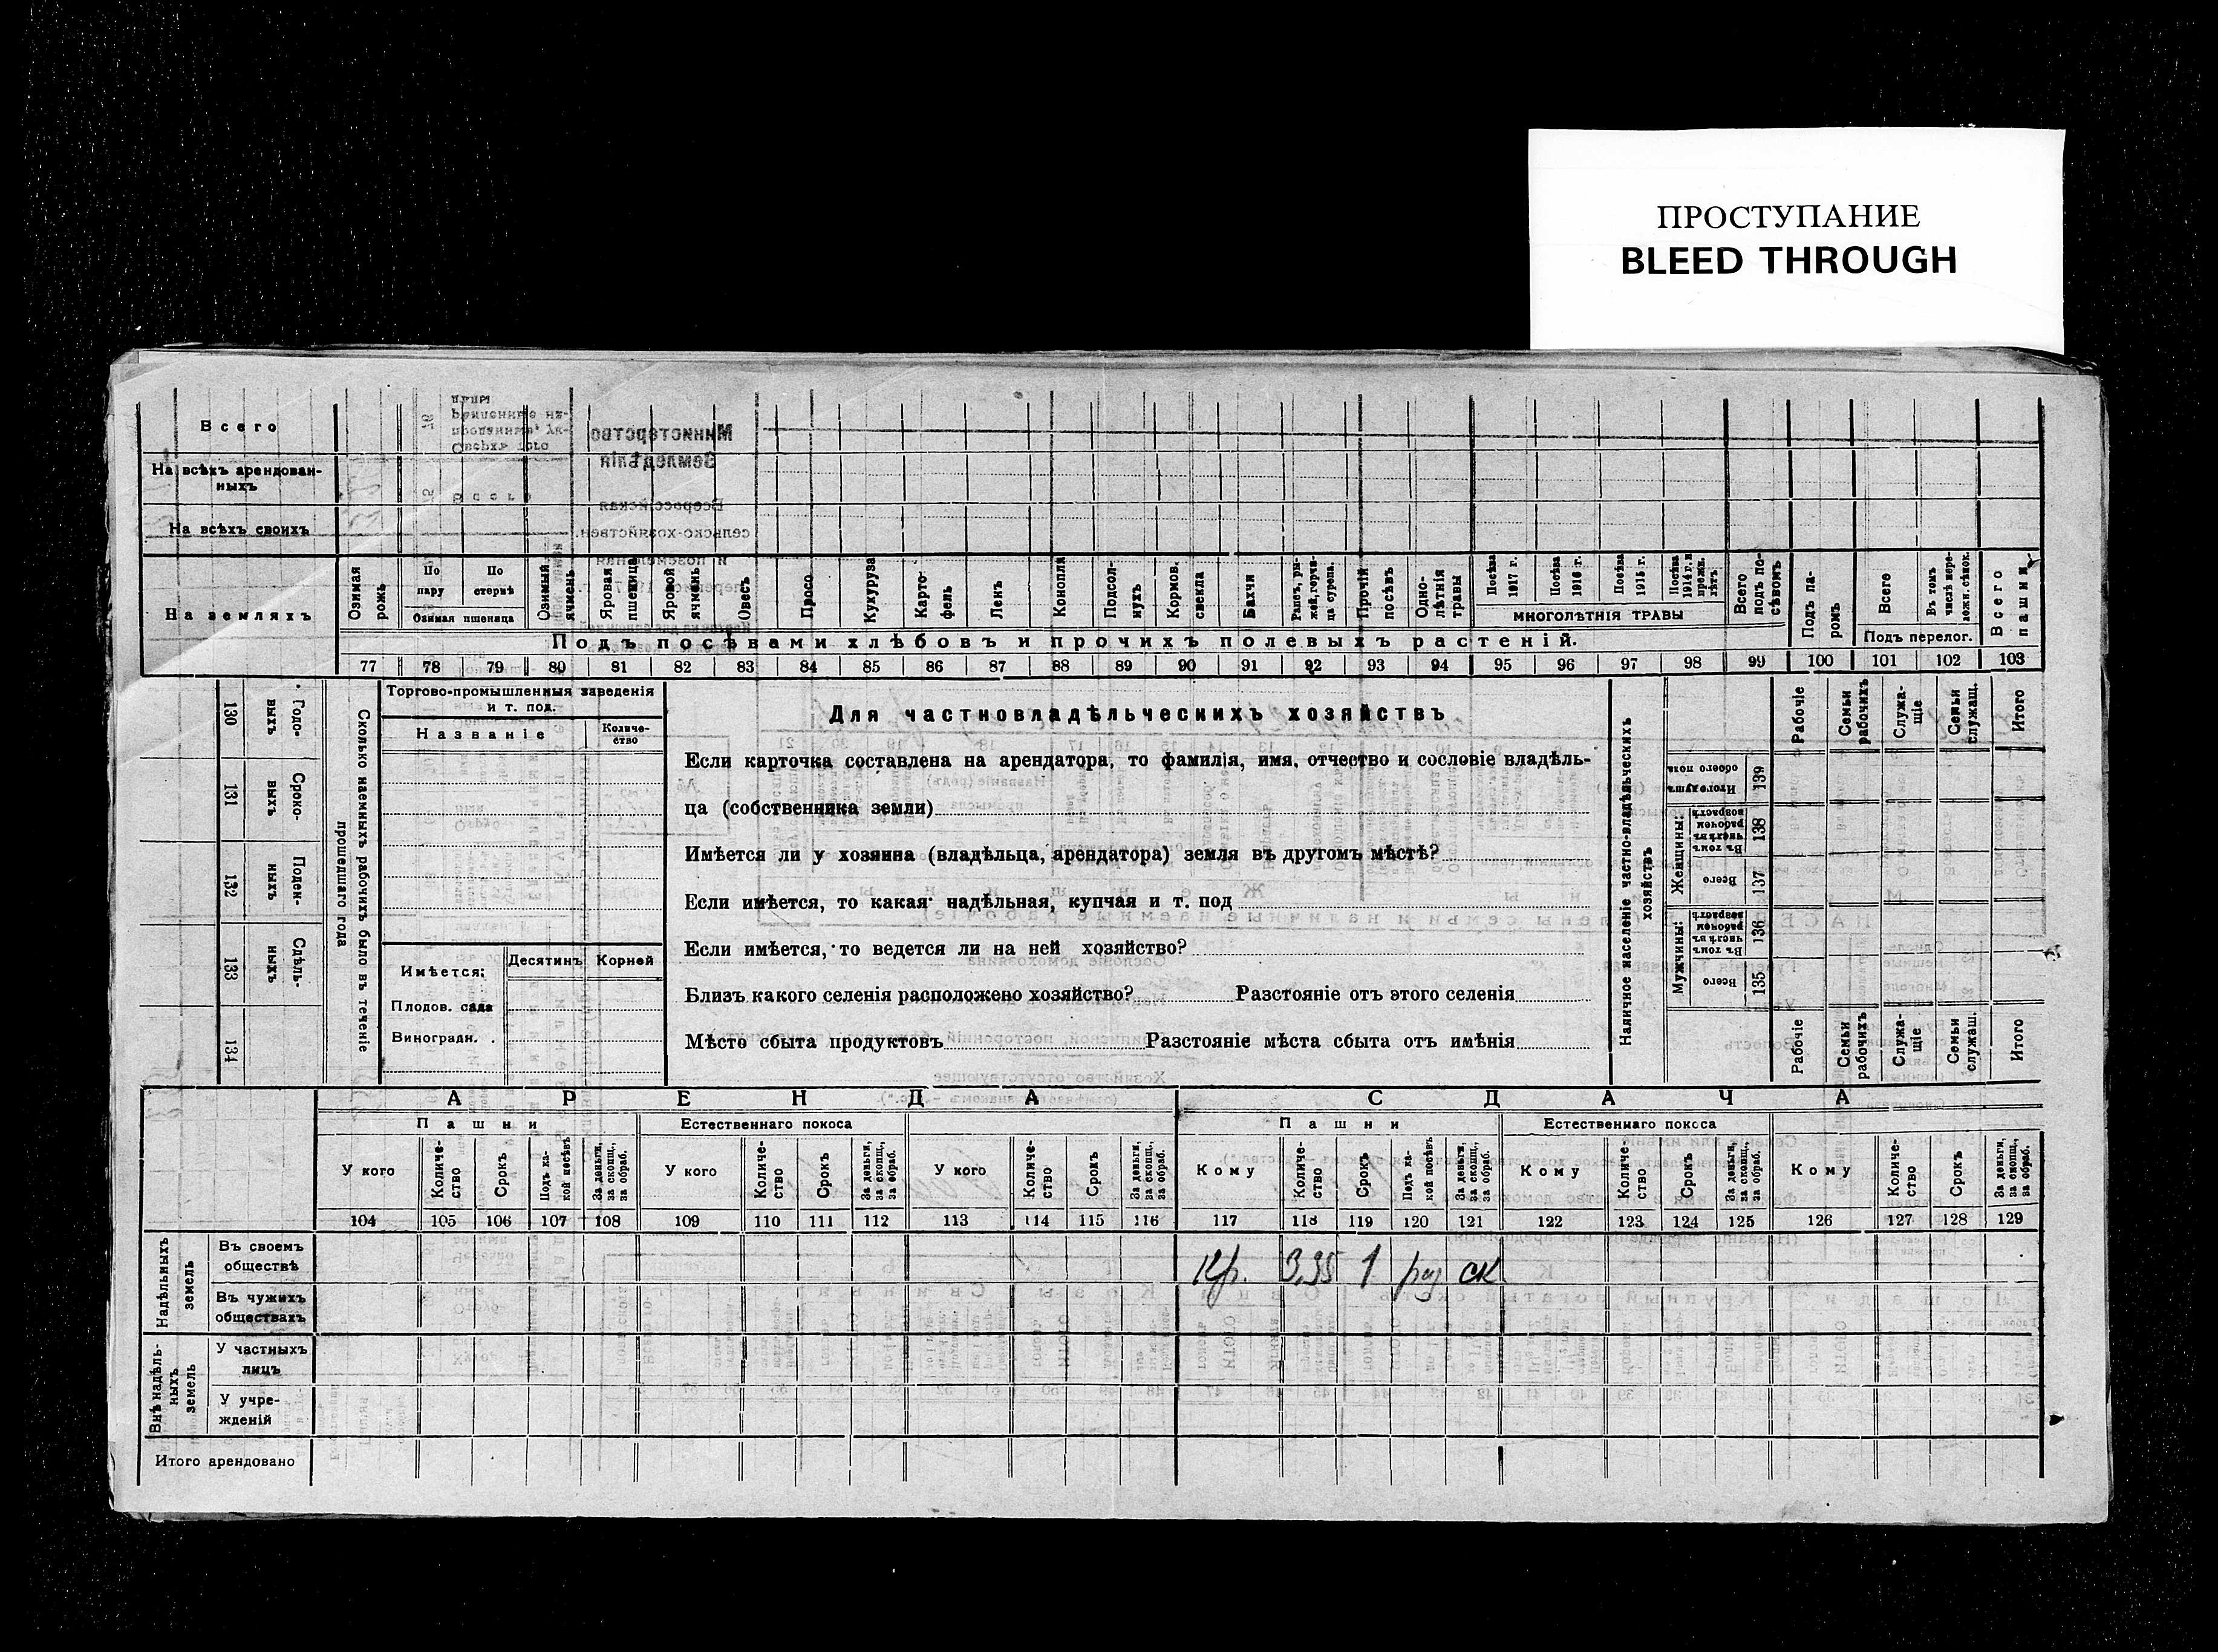 ПРОСТУПАНИЕ
BLEED THROUGH
Всего
На всѣхъ арендован-
ныхъ
На всѣхъ своихъ
На земляхъ
Озимая рожь
По пару
По стернѣ
Озимая пшеница
Озимый ячмень
Яровая пшеница
Яровой ячмень
Овесъ
Просо
Кукуруза
Карто-фель
Ленъ
Конопля
Подсол-нухъ
Кормов. свекла
Бахчи
Рапсъ, ры-жей, горчи-ца сурепа.
Прочій посѣвъ
Одно-лѣтнія травы
Посѣва 1917 г.
Посѣва 1916 г.
Посѣва 1915 г.
Посѣва 1914 г. и прежн. лѣтъ
МНОГОЛѢТНІЯ ТРАВЫ
Всего подъ по-сѣвомъ
Подъ па-ромъ
Всего
Въ томъ числѣ пере-ложн. сѣнок.
Подъ перелог.
Всего пашни
Подъ посѣвами хлѣбовъ и прочихъ полевыхъ растеній.
77 78 79 80 81 82 83 84 85 86 87 88 89 90 91 92 93 94 95 96 97 98 99 100 101 102 103
130 Годо-выхъ
131 Сроко-выхъ
132 Поден-ныхъ
133 Сдѣль-ныхъ
134
Сколько наемныхъ рабочихъ было въ теченіе
прошедшаго года
Торгово-промышленныя заведенія
и т. под.
Названіе
Количе-ство
Имѣется:
Десятинъ
Корней
Плодов. сада
Виноградн.
Для частновладѣльческихъ хозяйствъ
Если карточка составлена на арендатора, то фамилія, имя, отчество и сословіе владѣль-
ца (собственника земли)
Имѣется ли у хозяина (владѣльца, арендатора) земля въ другомъ мѣстѣ?
Если имѣется, то какая надѣльная, купчая и т. под
Если имѣется, то ведется ли на ней хозяйство?
Близъ какого селенія расположено хозяйство? Разстояніе отъ этого селенія
Мѣсто сбыта продуктовъ Разстояніе мѣста сбыта отъ имѣнія
Наличное населеніе частно-владѣльческихъ
хозяйствъ
Итого душъ обоего пола 139
Женщины:
Въ томъ числѣ въ рабочемъ возрастѣ 138
Всего 137
Мужчины:
Въ томъ числѣ въ рабочемъ возрастѣ 136
Всего 135
Рабочіе
Семьи рабочихъ
Служа-щіе
Семьи служащ.
Итого
Рабочіе
Семьи рабочихъ
Служа-щіе
Семьи служащ.
Итого
АРЕНДА
СДАЧА
Пашни
Естественнаго покоса
Пашни
Естественнаго покоса
У кого
Количе-ство
Срокъ
Подъ ка-кой посѣвъ
За деньги, за скопщ., за обраб.
У кого
Количе-ство
Срокъ
За деньги, за скопщ., за обраб.
У кого
Количе-ство
Срокъ
За деньги, за скопщ., за обраб.
Кому
Количе-ство
Срокъ
Подъ ка-кой посѣвъ
За деньги, за скопщ., за обраб.
Кому
Количе-ство
Срокъ
За деньги, за скопщ., за обраб.
Кому
Количе-ство
Срокъ
За деньги, за скопщ., за обраб.
104 105 106 107 108 109 110 111 112 113 114 115 116 117 118 119 120 121 122 123 124 125 126 127 128 129
Надѣльныхъ земель
Въ своемъ
обществѣ
Кр. 3,35 1 раз ск
Въ чужихъ
обществахъ
Внѣ надѣль-ныхъ земель
У частныхъ
лицъ
У учре-
жденій
Итого арендовано